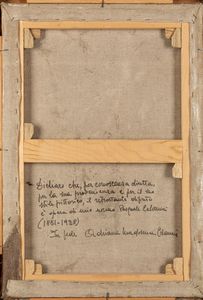 Dichiaro che, per conoscenza diretta,
per la sua provenienza e per il suo
stile pittorico, il retrostante dipinto
è opera di mio nonno Pasquale Celommi
(1851-1928)
In fede Adriana Celommi